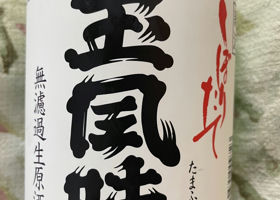 しぼりたて
たまふ
玉風味
無濾過生原酒